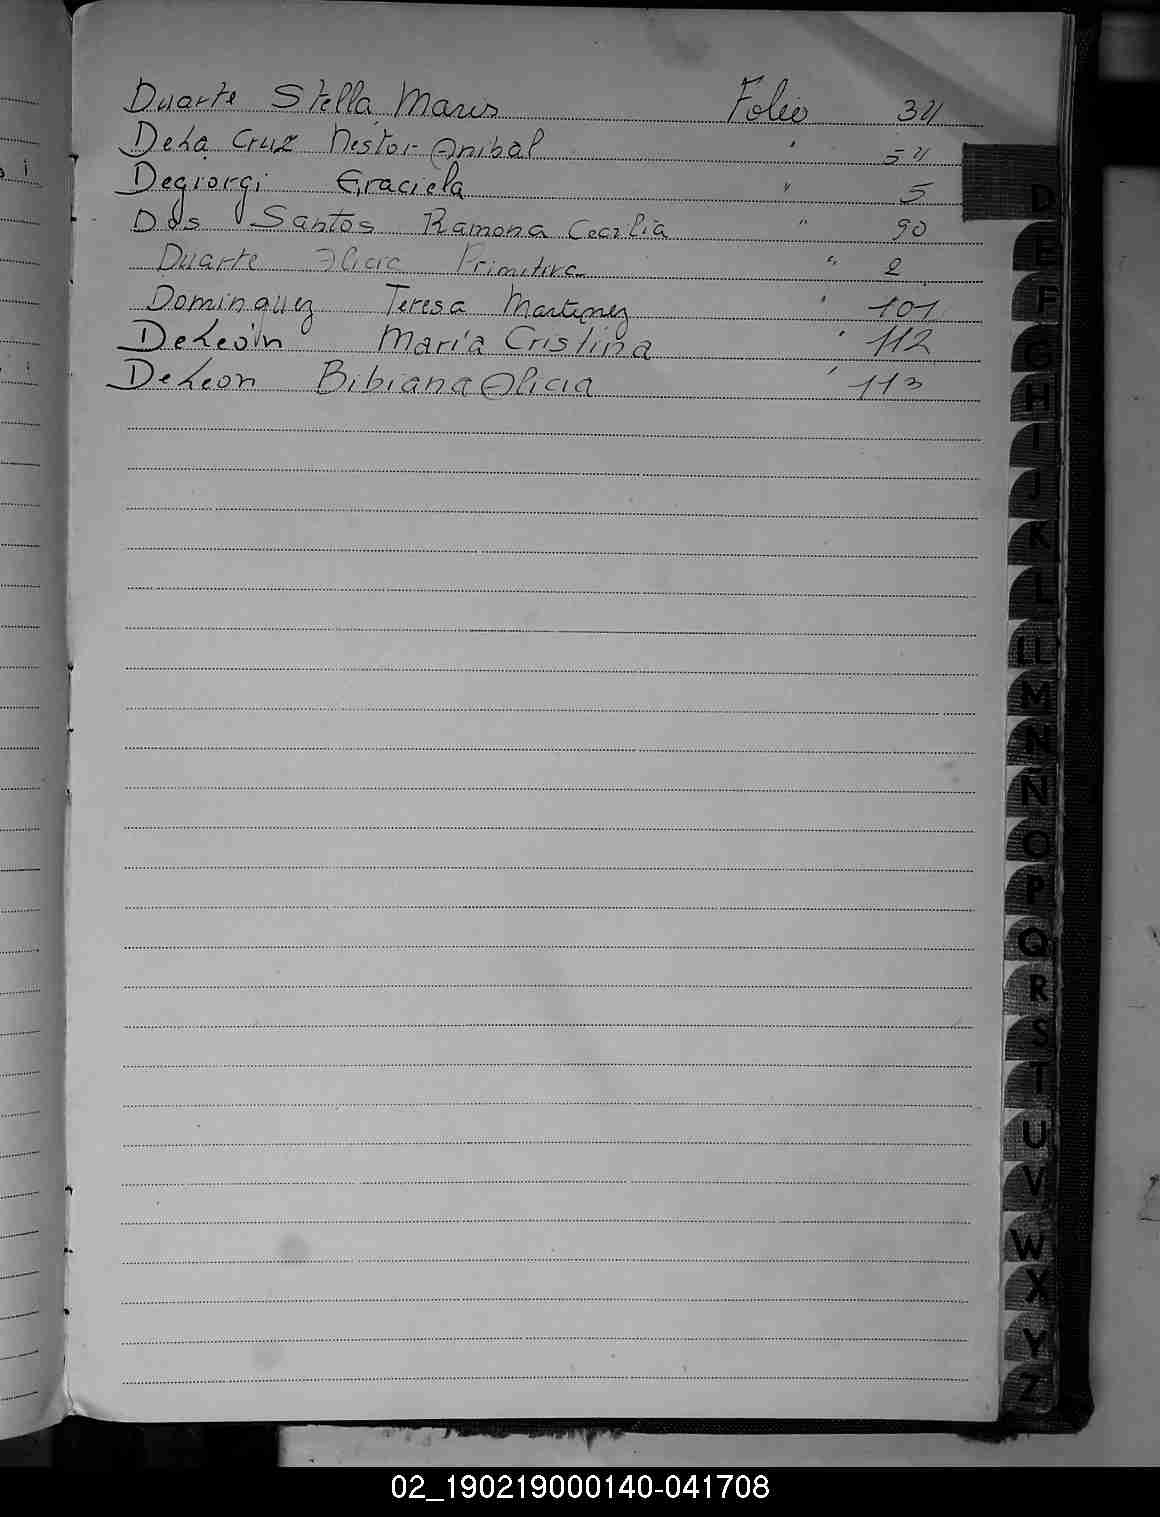 Duarte Stella Maris Folio 34
DeLa Cruz Nestor Anibal " 54
Degiorgi Graciela " 5
Dos Santos Ramona Cecilia " 90
Duarte Alicia Primitiva " 2
Dominguez Teresa Martinez " 101
DeLeoin María Cristina " 112
DeLeon Bibiana Alicia " 113
D
E
F
G
H
I
J
K
L
LL
M
N
Ñ
O
P
Q
R
S
T
U
V
W
X
Y
Z
02_190219000140-041708